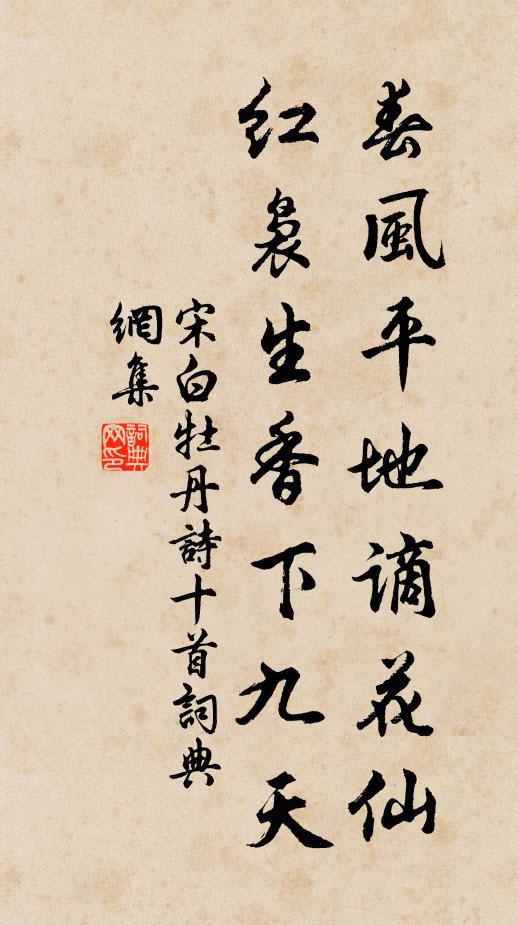 春風平地謫花仙
紅裊生香下九天
宋白牡丹詩十首詞典
網集
詞典網印